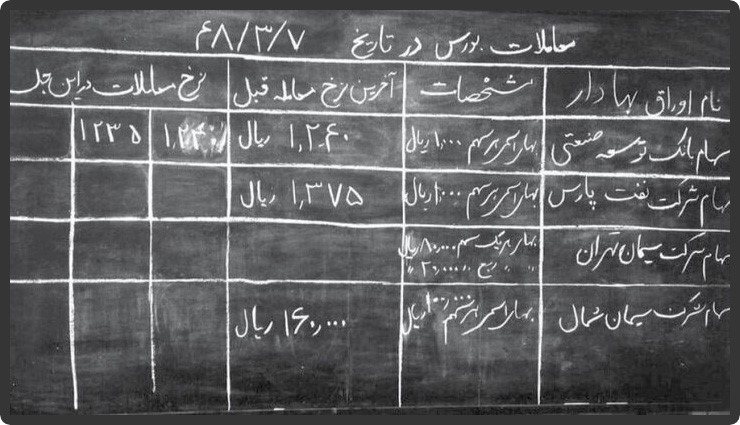 معاملات بورس در تاریخ ۴۸/۳/۷
نام اوراق بهادار مشخصات آخرین نرخ معامله قبل نرخ معاملات در این جلسه
سهام بانک توسعه صنعتی بهای اسمی هر سهم ۱٫۰۰۰ ریال ۱٫۲۴۰ ریال ۱٫۲۴۰ ۱۲۳۵
سهام شرکت نفت پارس بهای اسمی هر سهم ۱٫۰۰۰ ریال ۱٫۳۷۵ ریال
سهام شرکت سیمان تهران بهای هر یک سهم ۸۰٫۰۰۰ ریال
〃 〃 ربع 〃 ۲۰٫۰۰۰ 〃
سهام شرکت سیمان شمال بهای اسمی هر سهم ۱۰۰٫۰۰۰ ریال ۱۶۰٫۰۰۰ ریال